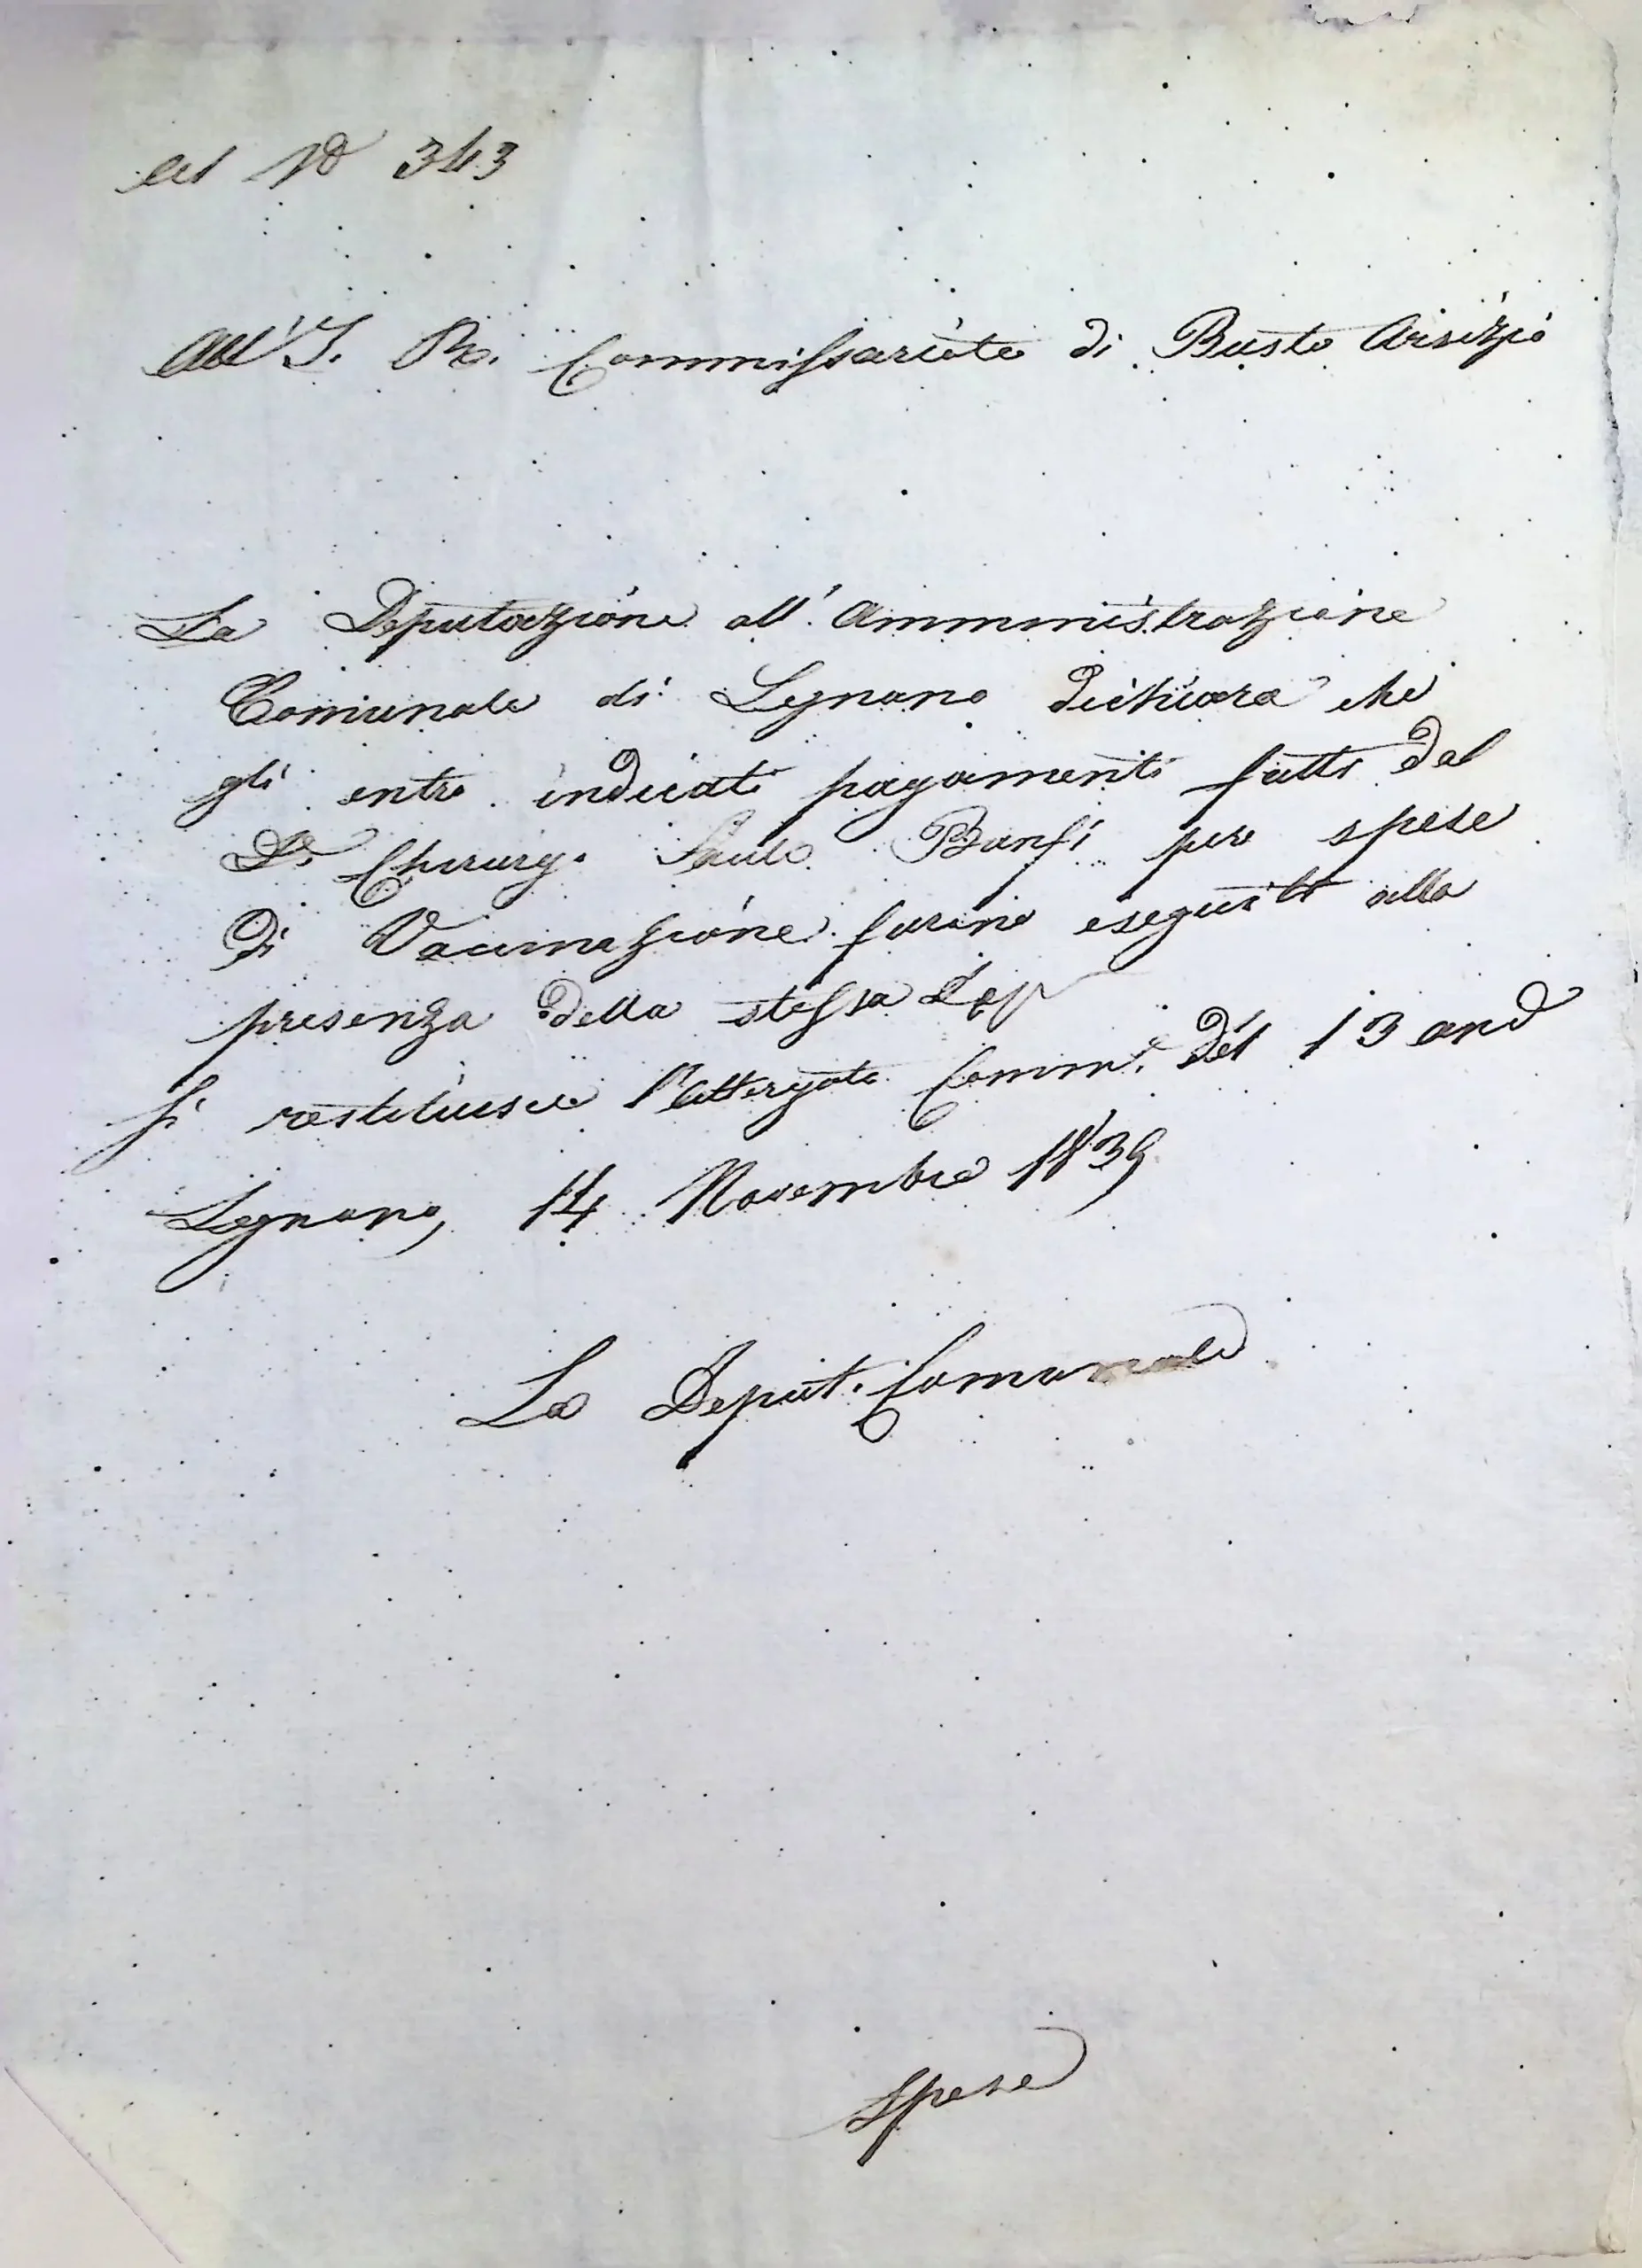 al N° 343
All' I. R. Commissariato di Busto Arsizio
La Deputazione all' Amministrazione
Comunale di Legnano dichiara che
gli entro indicati pagamenti fatti dal
Dr Chirurg. Paulo Banfi per spese
di Vaccinazione furono eseguiti alla
presenza della stessa Dep
Si restituisce l'attergato Comm.e del 13 and
Legnano, 14 Novembre 1839
La Deput. Comunale
Spese